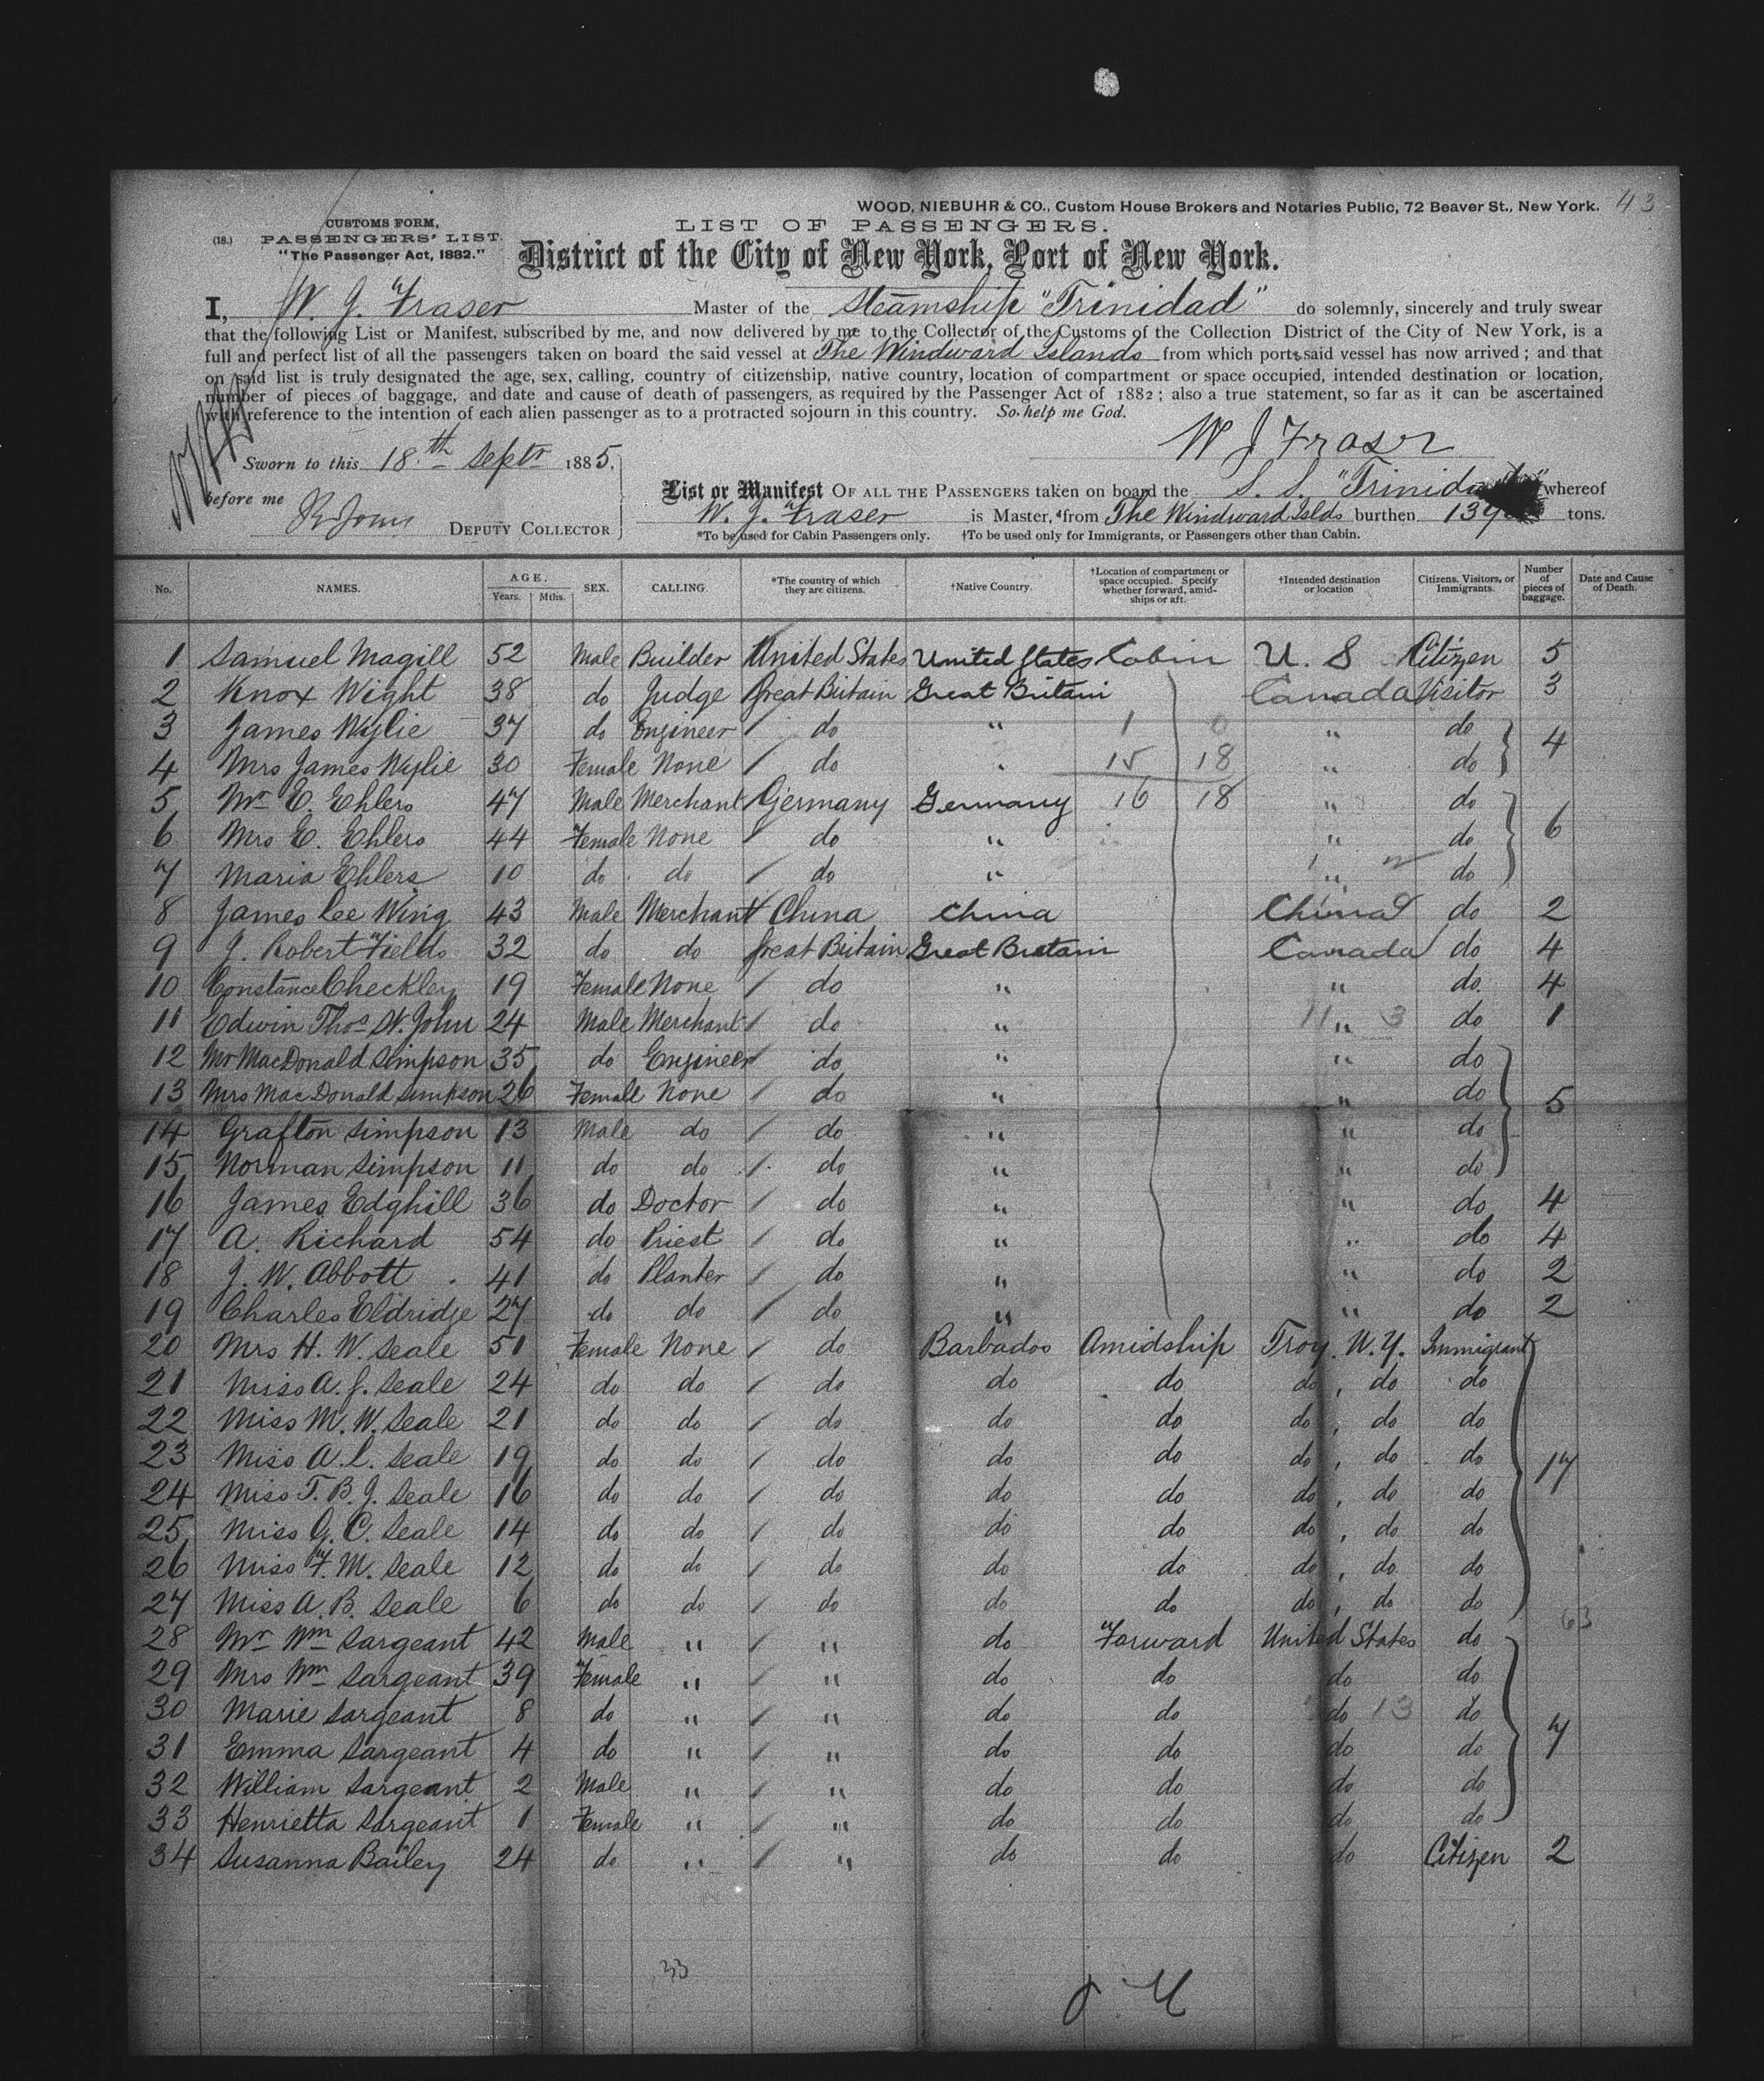 43
WOOD, NIEBUHR & CO., Custom House Brokers and Notaries Public, 72 Beaver St., New York.
CUSTOMS FORM,
LIST OF PASSENGERS.
(18.) PASSENGERS' LIST.
"The Passenger Act, 1882."
District of the City of New York, Port of New York.
I, W. J. Fraser Master of the Steamship "Trinidad" do solemnly, sincerely and truly swear
that the following List or Manifest, subscribed by me, and now delivered by me to the Collector of the Customs of the Collection District of the City of New York, is a
full and perfect list of all the passengers taken on board the said vessel at The Windward Islands from which ports said vessel has now arrived; and that
on said list is truly designated the age, sex, calling, country of citizenship, native country, location of compartment or space occupied, intended destination or location,
number of pieces of baggage, and date and cause of death of passengers, as required by the Passenger Act of 1882; also a true statement, so far as it can be ascertained
with reference to the intention of each alien passenger as to a protracted sojourn in this country. So help me God.
W J Fraser
Sworn to this 18th Septr 1885,
before me
DEPUTY COLLECTOR
List or Manifest OF ALL THE PASSENGERS taken on board the S. S. "Trinidad" whereof
W. J. Fraser is Master, from The Windward Islds burthen tons.
*To be used for Cabin Passengers only. †To be used only for Immigrants, or Passengers other than Cabin.
No. NAMES. AGE. Years. Mths. SEX. CALLING. *The country of which they are citizens. †Native Country. †Location of compartment or space occupied. Specify whether forward, amidships or aft. †Intended destination or location Citizens, Visitors, or Immigrants. Number of pieces of baggage. Date and Cause of Death.
1 Samuel Magill 52 Male Builder United States United States Cabin U. S Citizen 5
2 Knox Wight 38 do Judge Great Britain Great Britain Canada Visitor 3
3 James Wylie 37 do Engineer do " 1 0 " do
4 Mrs James Wylie 30 Female None do " 15 18 " do 4
5 Mr E. Ehlers 47 Male Merchant Germany Germany 16 18 " do
6 Mrs E. Ehlers 44 Female None do " " do 6
7 Maria Ehlers 10 do do do " " do
8 James Lee Wing 43 Male Merchant China China China do 2
9 J. Robert Fields 32 do do Great Britain Great Britain Canada do 4
10 Constance Checkley 19 Female None do " " do 4
11 Edwin Thos St. John 24 Male Merchant do " 11 " 3 do 1
12 Mr MacDonald Simpson 35 do Engineer do " " do
13 Mrs MacDonald Simpson 26 Female None do " " do 5
14 Grafton Simpson 13 Male do do " " do
15 Norman Simpson 11 do do do " " do
16 James Edghill 36 do Doctor do " " do 4
17 A. Richard 54 do Priest do " " do 4
18 J. W. Abbott 41 do Planter do " " do 2
19 Charles Eldridge 27 do do do " " do 2
20 Mrs H. W. Seale 51 Female None do Barbados Amidship Troy. N.Y. Immigrant
21 Miss A. J. Seale 24 do do do do do do, do do
22 Miss M. W. Seale 21 do do do do do do, do do
23 Miss A. L. Seale 19 do do do do do do, do do 17
24 Miss T. B. J. Seale 16 do do do do do do, do do
25 Miss G. C. Seale 14 do do do do do do, do do
26 Miss F. M. Seale 12 do do do do do do, do do
27 Miss A. B. Seale 6 do do do do do do, do do
63
28 Mr Wm Sargeant 42 Male " " do Forward United States do
29 Mrs Wm Sargeant 39 Female " " do do do do
30 Marie Sargeant 8 do " " do do do 13 do
31 Emma Sargeant 4 do " " do do do do 7
32 William Sargeant 2 Male " " do do do do
33 Henrietta Sargeant 1 Female " " do do do do
34 Susanna Bailey 24 do " " do do do Citizen 2
33